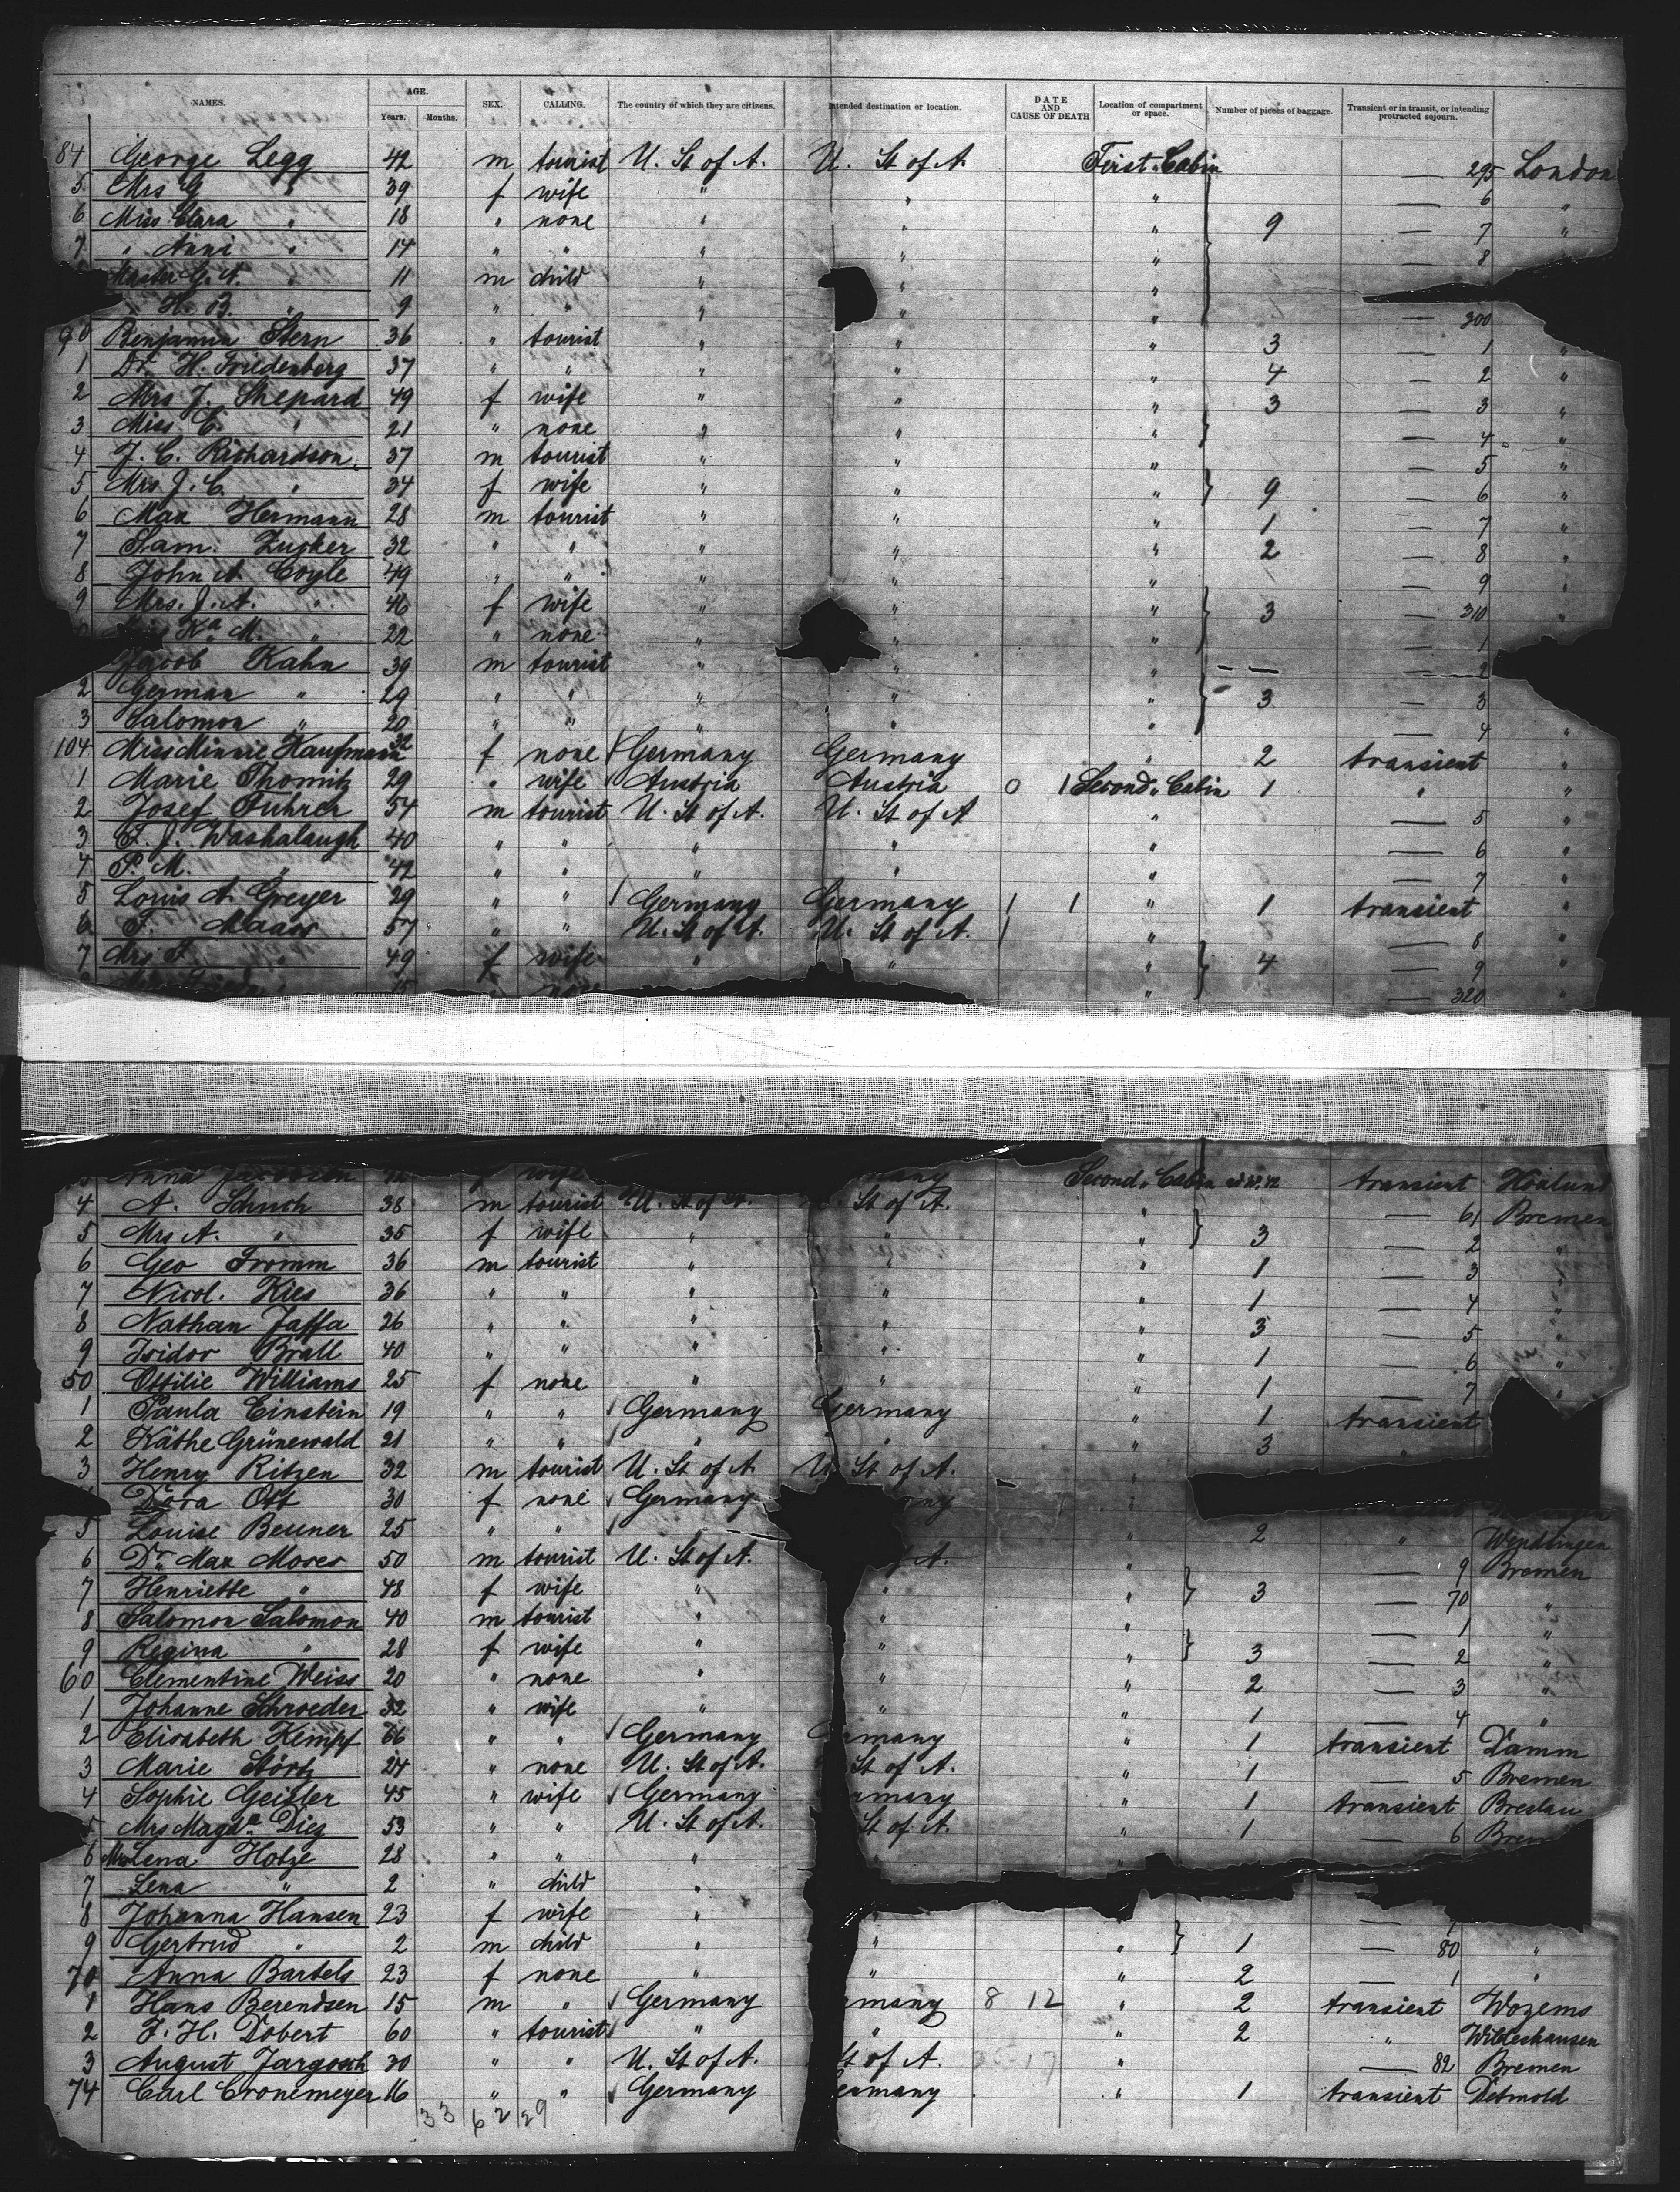 NAMES. AGE. Years. Months. SEX. CALLING. The country of which they are citizens. Intended destination or location. DATE AND CAUSE OF DEATH Location of compartment or space. Number of pieces of baggage. Transient or in transit, or intending protracted sojourn.
84 George Legg 42 m tourist U. St of A. U. St of A. First Cabin — 295 London
5 Mrs G " 39 f wife " " " — 6 "
6 Miss Clara " 18 " none " " " 9 — 7 "
7 " Anni " 14 " " " " " — 8 "
Master G. A. " 11 m child " " "
" H. B. " 9 " " " " " — 300
90 Benjamin Stern 36 " tourist " " " 3 — 1 "
1 Dr. H. Friedenberg 37 " " " " " 4 — 2 "
2 Mrs J. Shepard 49 f wife " " " 3 — 3 "
3 Miss C. " 21 " none " " " — 4 "
4 J. C. Richardson 37 m tourist " " " — 5 "
5 Mrs. J. C. " 34 f wife " " " 9 — 6 "
6 Max Hermann 28 m tourist " " " 1 — 7 "
7 Sam. Zucker 32 " " " " " 2 — 8 "
8 John A. Coyle 49 " " " " " — 9 "
9 Mrs. J. A. " 46 f wife " " " 3 — 310 "
Ka M. " 22 " none " " — 1
Jacob Kahn 39 m tourist " " " — — 2
2 German " 29 " " " " " 3 — 3 "
3 Salomon " 20 " " " " " — 4 "
104 Miss Minnie Kaufmann 32 f none Germany Germany " 2 transient "
1 Marie Thomitz 29 " wife Austria Austria 0 1 Second " Cabin 1 " "
2 Josef Fuhrer 54 m tourist U. St of A. U. St of A " — 5 "
3 F. J. Washalaugh 40 " " " " " — 6 "
4 P. M. " 42 " " " " " — 7 "
5 Louis A. Greyer 29 " " Germany Germany 1 1 " 1 transient "
6 F. Maass 57 " " U. St of A. U. St of A. " — 8 "
7 Mrs F. " 49 f wife " " " 4 — 9 "
15 none " — 320 "
Anna f wife Second " Cabin transient
4 A. Schuch 38 m tourist U. St of A. St of A. " — 61 Bremen
5 Mrs A. " 35 f wife " " " 3 — 2 "
6 Geo Fromm 36 m tourist " " " 1 — 3 "
7 Nicol. Kies 36 " " " " " 1 — 4 "
8 Nathan Jaffa 26 " " " " " 3 — 5 "
9 Isidor Brall 40 " " " " " 1 — 6 "
50 Ottilie Williams 25 f none " " " 1 — 7 "
1 Paula Einstein 19 " " Germany Germany " 1 transient
2 Käthe Grünewald 21 " " " " " 3 "
3 Henry Ritzen 32 m tourist U. St of A. U. St of A. "
Dora Ott 30 f none Germany any "
5 Louise Beuner 25 " " " 2 " Wendlingen
6 Dr. Max Moses 50 m tourist U. St of A. of A. " — 9 Bremen
7 Henriette " 48 f wife " " " 3 — 70 "
8 Salomon Salomon 40 m tourist " " " — 1 "
9 Regina " 28 f wife " " " 3 — 2 "
60 Clementine Weiss 20 " none " " " 2 — 3 "
1 Johanne Schroeder 32 " wife " " " 1 — 4 "
2 Elisabeth Kempf 66 " " Germany many " 1 transient Damm
3 Marie Störtz 24 " none U. St of A. St of A. " 1 — 5 Bremen
4 Sophie Geisler 45 " wife Germany many " 1 transient Breslau
5 Mrs Magda Diez 53 " " U. St of A. St of A. " 1 — 6 Brem
6 Mrs Lena Hotze 28 " " "
7 Lena " 2 " child "
8 Johanna Hansen 23 f wife " "
9 Gertrud " 2 m child " " " 1 — 80 "
70 Anna Bartels 23 f none " " " 2 — 1 "
1 Hans Berendsen 15 m " Germany many 8 12 " 2 transient Wozems
2 F. H. Dobert 60 " tourist " " " 2 " Wildeshausen
3 August Jargosch 30 " " U. St of A. St of A. 17 " — 82 Bremen
74 Carl Cronemeyer 16 " " Germany Germany " 1 transient Detmold
33 62 29